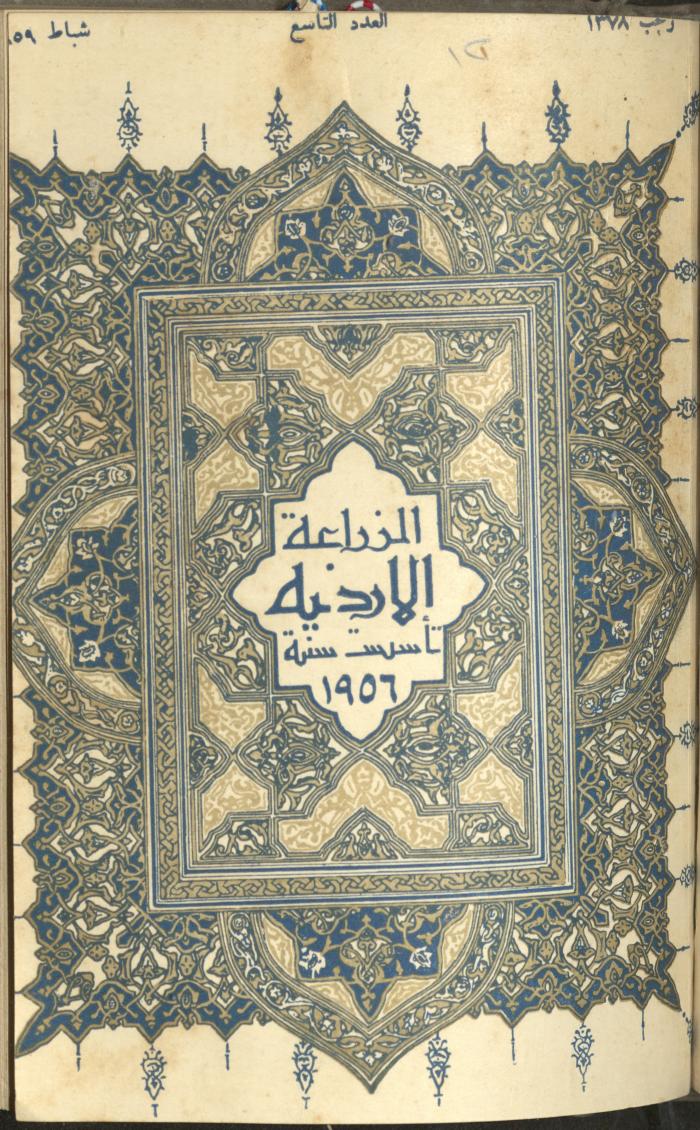 رجب ١٣٧٨ العدد التاسع شباط ٥٩
المزراعة
الاردنية
تأسست سنة
١٩٥٦